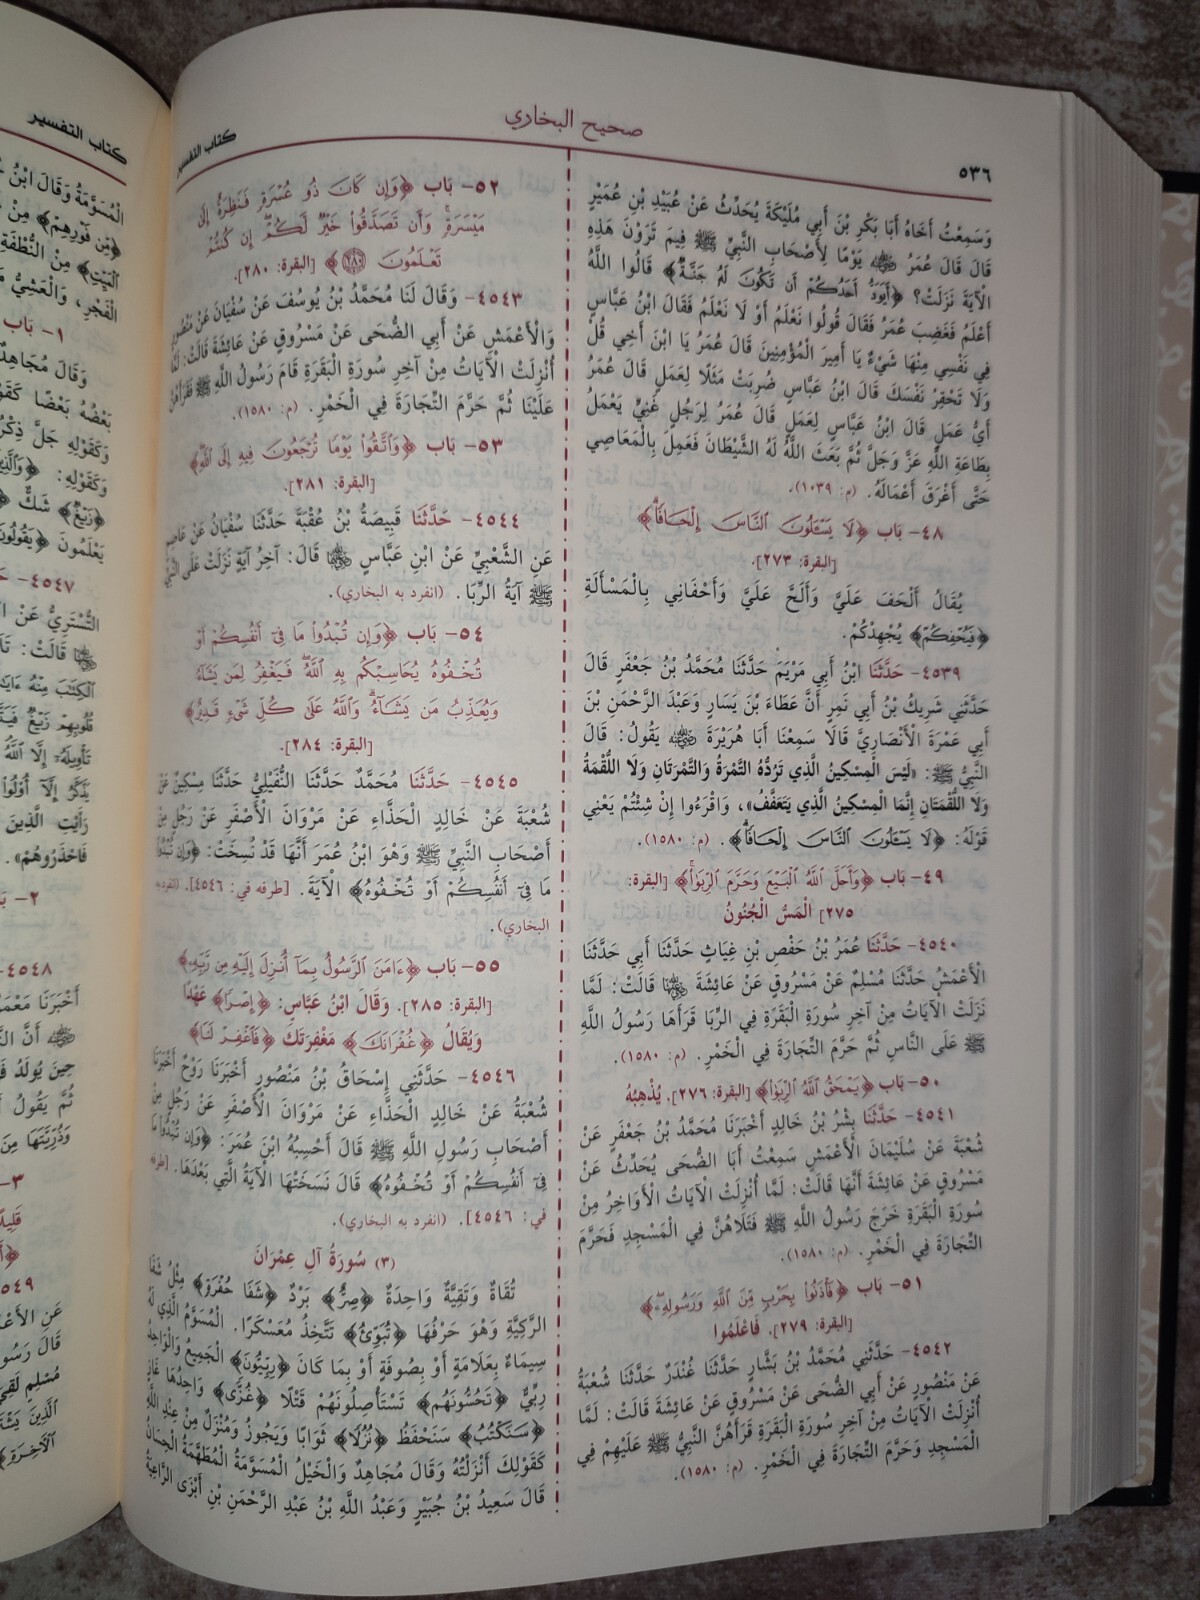 صحيح البخاري
٥٣٦
كتاب التفسير
وَسَمِعْتُ أَخَاهُ أَبَا بَكْرِ بْنَ أَبِي مُلَيْكَةَ يُحَدِّثُ عَنْ عُبَيْدِ بْنِ عُمَيْرٍ
قَالَ قَالَ عُمَرُ ﵁ يَوْمًا لِأَصْحَابِ النَّبِيِّ ﷺ فِيمَ تَرَوْنَ هَذِهِ
الْآيَةَ نَزَلَتْ؟ ﴿أَيَوَدُّ أَحَدُكُمْ أَن تَكُونَ لَهُ جَنَّةٌ﴾ قَالُوا اللَّهُ
أَعْلَمُ فَغَضِبَ عُمَرُ فَقَالَ قُولُوا نَعْلَمُ أَوْ لَا نَعْلَمُ فَقَالَ ابْنُ عَبَّاسٍ
فِي نَفْسِي مِنْهَا شَيْءٌ يَا أَمِيرَ الْمُؤْمِنِينَ قَالَ عُمَرُ يَا ابْنَ أَخِي قُلْ
وَلَا تَحْقِرْ نَفْسَكَ قَالَ ابْنُ عَبَّاسٍ ضُرِبَتْ مَثَلًا لِعَمَلٍ قَالَ عُمَرُ
أَيُّ عَمَلٍ قَالَ ابْنُ عَبَّاسٍ لِعَمَلٍ قَالَ عُمَرُ لِرَجُلٍ غَنِيٍّ يَعْمَلُ
بِطَاعَةِ اللَّهِ عَزَّ وَجَلَّ ثُمَّ بَعَثَ اللَّهُ لَهُ الشَّيْطَانَ فَعَمِلَ بِالْمَعَاصِي
حَتَّى أَغْرَقَ أَعْمَالَهُ. (م: ١٠٣٩).
٤٨- بَاب ﴿لَا يَسْـَٔلُونَ النَّاسَ إِلْحَافًا﴾
[البقرة: ٢٧٣].
يُقَالُ أَلْحَفَ عَلَيَّ وَأَلَحَّ عَلَيَّ وَأَحْفَانِي بِالْمَسْأَلَةِ
﴿فَيُحْفِكُمْ﴾ يُجْهِدْكُمْ.
٤٥٣٩- حَدَّثَنَا ابْنُ أَبِي مَرْيَمَ حَدَّثَنَا مُحَمَّدُ بْنُ جَعْفَرٍ قَالَ
حَدَّثَنِي شَرِيكُ بْنُ أَبِي نَمِرٍ أَنَّ عَطَاءَ بْنَ يَسَارٍ وَعَبْدَ الرَّحْمَنِ بْنَ
أَبِي عَمْرَةَ الْأَنْصَارِيَّ قَالَا سَمِعْنَا أَبَا هُرَيْرَةَ ﵁ يَقُولُ: قَالَ
النَّبِيُّ ﷺ: «لَيْسَ الْمِسْكِينُ الَّذِي تَرُدُّهُ التَّمْرَةُ وَالتَّمْرَتَانِ وَلَا اللُّقْمَةُ
وَلَا اللُّقْمَتَانِ إِنَّمَا الْمِسْكِينُ الَّذِي يَتَعَفَّفُ»، وَاقْرَءُوا إِنْ شِئْتُمْ يَعْنِي
قَوْلَهُ: ﴿لَا يَسْـَٔلُونَ النَّاسَ إِلْحَافًا﴾. (م: ١٥٨٠).
٤٩- بَاب ﴿وَأَحَلَّ اللَّهُ الْبَيْعَ وَحَرَّمَ الرِّبَوٰا﴾ [البقرة:
٢٧٥] الْمَسُّ الْجُنُونُ
٤٥٤٠- حَدَّثَنَا عُمَرُ بْنُ حَفْصِ بْنِ غِيَاثٍ حَدَّثَنَا أَبِي حَدَّثَنَا
الْأَعْمَشُ حَدَّثَنَا مُسْلِمٌ عَنْ مَسْرُوقٍ عَنْ عَائِشَةَ ﵂ قَالَتْ: لَمَّا
نَزَلَتْ الْآيَاتُ مِنْ آخِرِ سُورَةِ الْبَقَرَةِ فِي الرِّبَا قَرَأَهَا رَسُولُ اللَّهِ
ﷺ عَلَى النَّاسِ ثُمَّ حَرَّمَ التِّجَارَةَ فِي الْخَمْرِ. (م: ١٥٨٠).
٥٠- بَاب ﴿يَمْحَقُ اللَّهُ الرِّبَوٰا﴾ [البقرة: ٢٧٦]. يُذْهِبُهُ
٤٥٤١- حَدَّثَنَا بِشْرُ بْنُ خَالِدٍ أَخْبَرَنَا مُحَمَّدُ بْنُ جَعْفَرٍ عَنْ
شُعْبَةَ عَنْ سُلَيْمَانَ الْأَعْمَشِ سَمِعْتُ أَبَا الضُّحَى يُحَدِّثُ عَنْ
مَسْرُوقٍ عَنْ عَائِشَةَ أَنَّهَا قَالَتْ: لَمَّا أُنْزِلَتْ الْآيَاتُ الْأَوَاخِرُ مِنْ
سُورَةِ الْبَقَرَةِ خَرَجَ رَسُولُ اللَّهِ ﷺ فَتَلَاهُنَّ فِي الْمَسْجِدِ فَحَرَّمَ
التِّجَارَةَ فِي الْخَمْرِ. (م: ١٥٨٠).
٥١- بَاب ﴿فَأْذَنُوا بِحَرْبٍ مِّنَ اللَّهِ وَرَسُولِهِ﴾
[البقرة: ٢٧٩]. فَاعْلَمُوا
٤٥٤٢- حَدَّثَنِي مُحَمَّدُ بْنُ بَشَّارٍ حَدَّثَنَا غُنْدَرٌ حَدَّثَنَا شُعْبَةُ
عَنْ مَنْصُورٍ عَنْ أَبِي الضُّحَى عَنْ مَسْرُوقٍ عَنْ عَائِشَةَ قَالَتْ: لَمَّا
أُنْزِلَتْ الْآيَاتُ مِنْ آخِرِ سُورَةِ الْبَقَرَةِ قَرَأَهُنَّ النَّبِيُّ ﷺ عَلَيْهِمْ فِي
الْمَسْجِدِ وَحَرَّمَ التِّجَارَةَ فِي الْخَمْرِ. (م: ١٥٨٠).
٥٢- بَاب ﴿وَإِن كَانَ ذُو عُسْرَةٍ فَنَظِرَةٌ إِلَىٰ
مَيْسَرَةٍ وَأَن تَصَدَّقُوا خَيْرٌ لَّكُمْ إِن كُنتُمْ
تَعْلَمُونَ ٢٨٠﴾ [البقرة: ٢٨٠].
٤٥٤٣- وَقَالَ لَنَا مُحَمَّدُ بْنُ يُوسُفَ عَنْ سُفْيَانَ عَنْ مَنْصُورٍ
وَالْأَعْمَشِ عَنْ أَبِي الضُّحَى عَنْ مَسْرُوقٍ عَنْ عَائِشَةَ قَالَتْ: لَمَّا
أُنْزِلَتْ الْآيَاتُ مِنْ آخِرِ سُورَةِ الْبَقَرَةِ قَامَ رَسُولُ اللَّهِ ﷺ فَقَرَأَهُنَّ
عَلَيْنَا ثُمَّ حَرَّمَ التِّجَارَةَ فِي الْخَمْرِ. (م: ١٥٨٠).
٥٣- بَاب ﴿وَاتَّقُوا يَوْمًا تُرْجَعُونَ فِيهِ إِلَى اللَّهِ﴾
[البقرة: ٢٨١].
٤٥٤٤- حَدَّثَنَا قَبِيصَةُ بْنُ عُقْبَةَ حَدَّثَنَا سُفْيَانُ عَنْ عَاصِمٍ
عَنِ الشَّعْبِيِّ عَنْ ابْنِ عَبَّاسٍ ﵄ قَالَ: آخِرُ آيَةٍ نَزَلَتْ عَلَى النَّبِيِّ
ﷺ آيَةُ الرِّبَا. (انفرد به البخاري).
٥٤- بَاب ﴿وَإِن تُبْدُوا مَا فِي أَنفُسِكُمْ أَوْ
تُخْفُوهُ يُحَاسِبْكُم بِهِ اللَّهُ فَيَغْفِرُ لِمَن يَشَاءُ
وَيُعَذِّبُ مَن يَشَاءُ وَاللَّهُ عَلَىٰ كُلِّ شَيْءٍ قَدِيرٌ﴾
[البقرة: ٢٨٤].
٤٥٤٥- حَدَّثَنَا مُحَمَّدٌ حَدَّثَنَا النُّفَيْلِيُّ حَدَّثَنَا مِسْكِينٌ عَنْ
شُعْبَةَ عَنْ خَالِدٍ الْحَذَّاءِ عَنْ مَرْوَانَ الْأَصْفَرِ عَنْ رَجُلٍ مِنْ
أَصْحَابِ النَّبِيِّ ﷺ وَهُوَ ابْنُ عُمَرَ أَنَّهَا قَدْ نُسِخَتْ: ﴿وَإِن تُبْدُوا
مَا فِي أَنفُسِكُمْ أَوْ تُخْفُوهُ﴾ الْآيَةَ. [طرفه في: ٤٥٤٦]. (انفرد به
البخاري).
٥٥- بَاب ﴿ءَامَنَ الرَّسُولُ بِمَا أُنزِلَ إِلَيْهِ مِن رَّبِّهِ﴾
[البقرة: ٢٨٥]. وَقَالَ ابْنُ عَبَّاسٍ: ﴿إِصْرًا﴾ عَهْدًا
وَيُقَالُ ﴿غُفْرَانَكَ﴾ مَغْفِرَتَكَ ﴿فَاغْفِرْ لَنَا﴾
٤٥٤٦- حَدَّثَنِي إِسْحَاقُ بْنُ مَنْصُورٍ أَخْبَرَنَا رَوْحٌ أَخْبَرَنَا
شُعْبَةُ عَنْ خَالِدٍ الْحَذَّاءِ عَنْ مَرْوَانَ الْأَصْفَرِ عَنْ رَجُلٍ مِنْ
أَصْحَابِ رَسُولِ اللَّهِ ﷺ قَالَ أَحْسِبُهُ ابْنَ عُمَرَ: ﴿وَإِن تُبْدُوا مَا
فِي أَنفُسِكُمْ أَوْ تُخْفُوهُ﴾ قَالَ نَسَخَتْهَا الْآيَةُ الَّتِي بَعْدَهَا. [طرفه
في: ٤٥٤٦]. (انفرد به البخاري).
(٣) سُورَةُ آلِ عِمْرَانَ
تُقَاةٌ وَتَقِيَّةٌ وَاحِدَةٌ ﴿صِرٌّ﴾ بَرْدٌ ﴿شَفَا حُفْرَةٍ﴾ مِثْلُ شَفَا
الرَّكِيَّةِ وَهُوَ حَرْفُهَا ﴿تُبَوِّئُ﴾ تَتَّخِذُ مُعَسْكَرًا. الْمُسَوَّمُ الَّذِي لَهُ
سِيمَاءٌ بِعَلَامَةٍ أَوْ بِصُوفَةٍ أَوْ بِمَا كَانَ ﴿رِبِّيُّونَ﴾ الْجَمِيعُ وَالْوَاحِدُ
رِبِّيٌّ ﴿تَحُسُّونَهُمْ﴾ تَسْتَأْصِلُونَهُمْ قَتْلًا ﴿غُزًّى﴾ وَاحِدُهَا غَازٍ
﴿سَنَكْتُبُ﴾ سَنَحْفَظُ ﴿نُزُلًا﴾ ثَوَابًا وَيَجُوزُ وَمُنْزَلٌ مِنْ عِنْدِ اللَّهِ
كَقَوْلِكَ أَنْزَلْتُهُ وَقَالَ مُجَاهِدٌ وَالْخَيْلُ الْمُسَوَّمَةُ الْمُطَهَّمَةُ الْحِسَانُ
قَالَ سَعِيدُ بْنُ جُبَيْرٍ وَعَبْدُ اللَّهِ بْنُ عَبْدِ الرَّحْمَنِ بْنِ أَبْزَى الرَّاعِيَةُ
كتاب التفسير
الْمُسَوَّمَةُ وَقَالَ ابْنُ
﴿مِّن فَوْرِهِمْ﴾ مِنْ
الْمَيِّتِ﴾ مِنْ النُّطْفَةِ
الْفَجْرِ، وَالْعَشِيُّ
١- بَاب
وَقَالَ مُجَاهِدٌ
بَعْضُهُ بَعْضًا
وَكَقَوْلِهِ جَلَّ ذِكْرُهُ
وَكَقَوْلِهِ: ﴿وَالَّذِينَ
﴿زَيْغٌ﴾ شَكٌّ
يَعْلَمُونَ ﴿يَقُولُونَ
٤٥٤٧-
التُّسْتَرِيُّ عَنْ
قَالَتْ:
الْكِتَابَ مِنْهُ
قُلُوبِهِمْ زَيْغٌ
تَأْوِيلَهُ إِلَّا اللَّهُ
يَذَّكَّرُ إِلَّا أُولُوا
رَأَيْتِ الَّذِينَ
فَاحْذَرُوهُمْ».
٢-
٤٥٤٨-
أَخْبَرَنَا
أَنَّ
حِينَ يُولَدُ
ثُمَّ يَقُولُ
وَذُرِّيَّتَهَا مِنَ
٣-
قَلِيلًا
٤٥٤٩
عَنِ
قَالَ
مُسْلِمٍ لَقِيَ
الَّذِينَ
الْآخِرَةِ﴾